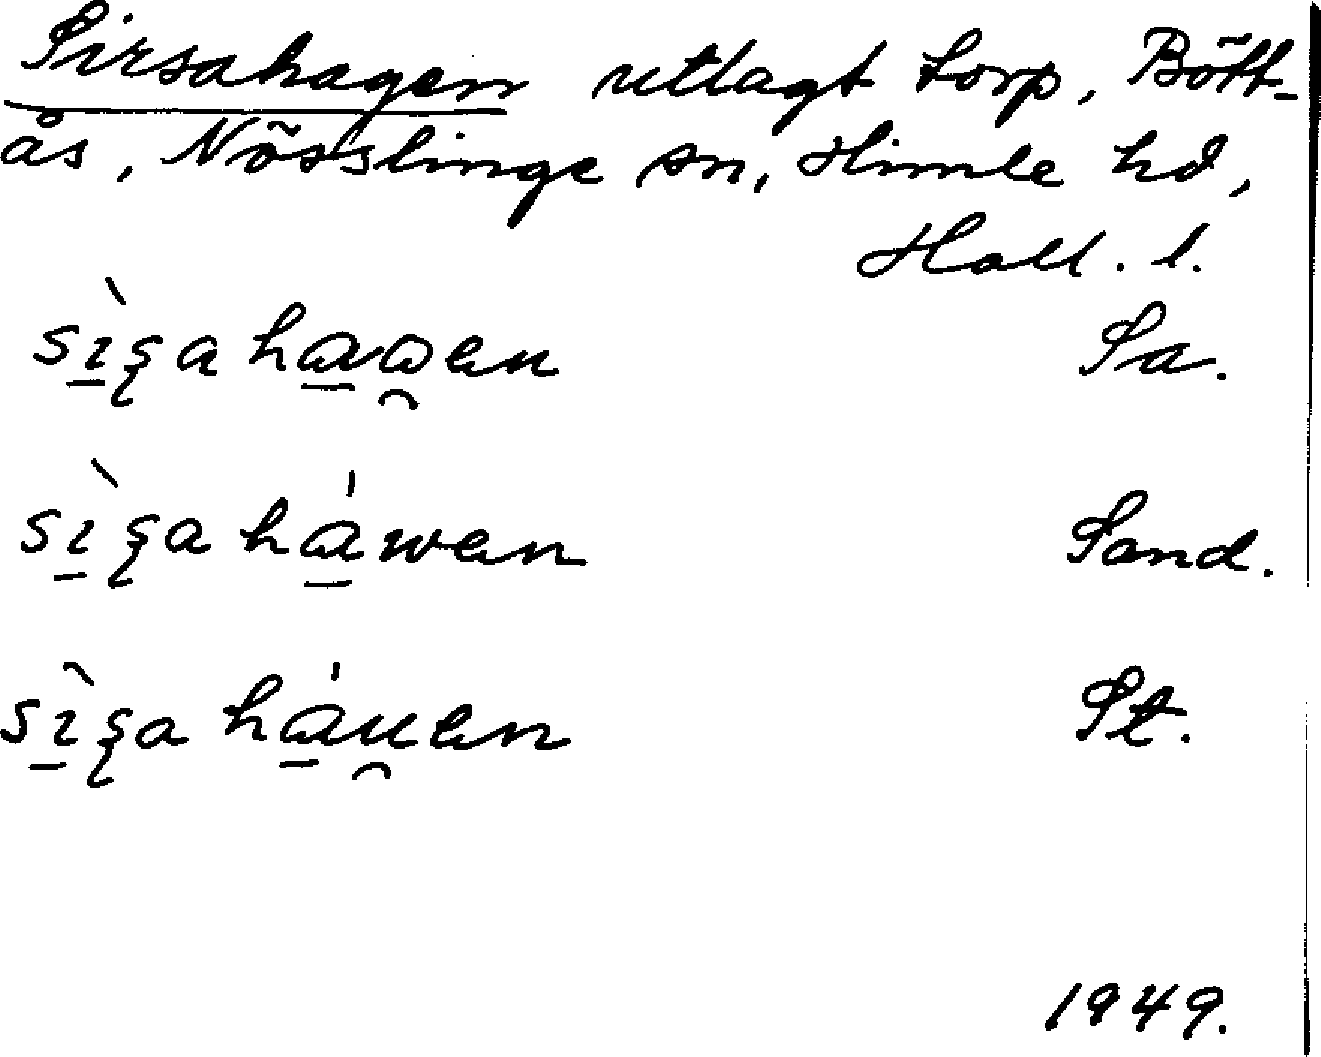 Sirsahagen utlagt torp, Bött-
ås, Nösslinge sn, Himle hd,
Hall. l.
Sa.
Sand.
St.
1949.